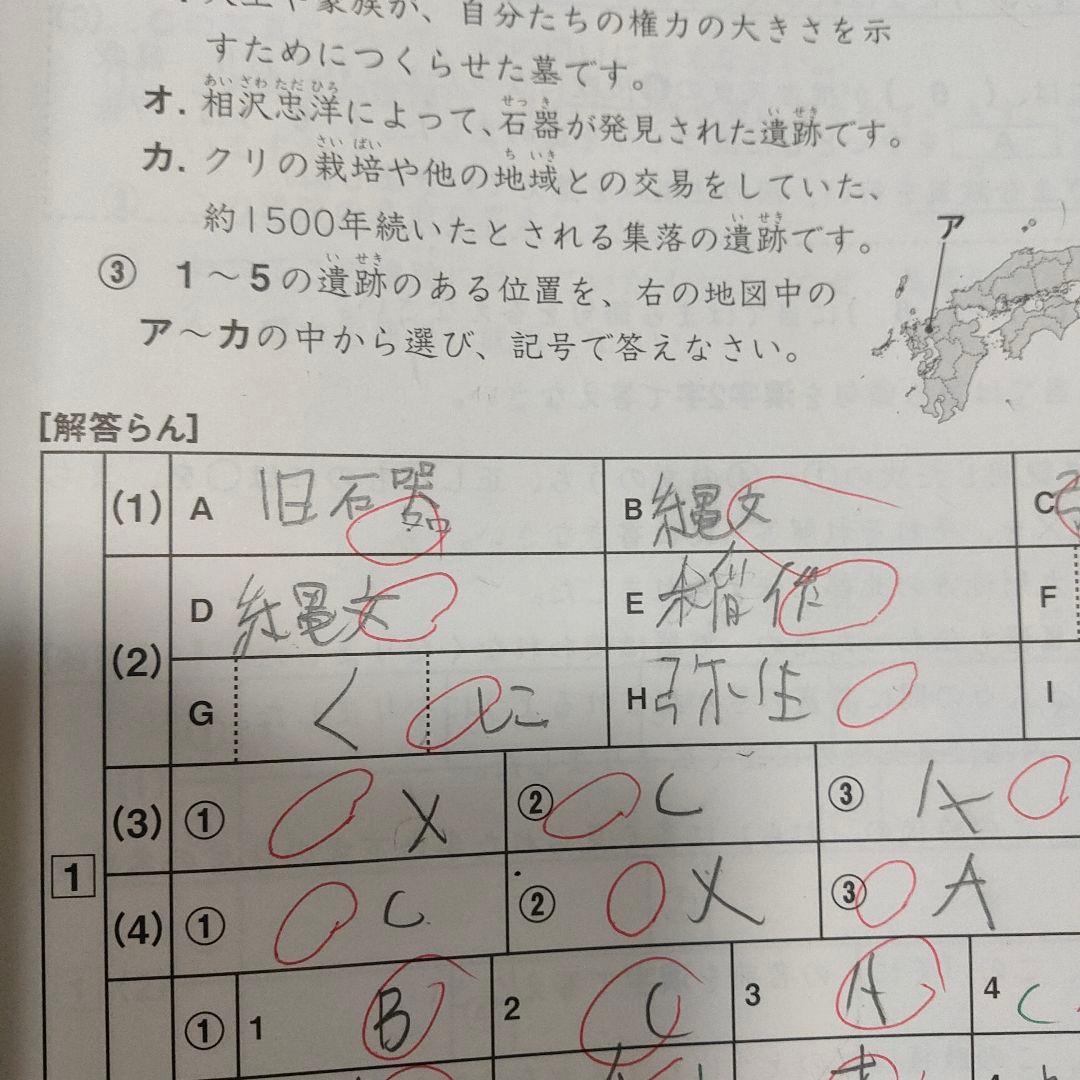 や家族が、自分たちの権力の大きさを示
すためにつくらせた墓です。
オ. 相沢忠洋によって、石器が発見された遺跡です。
カ. クリの栽培や他の地域との交易をしていた、
約1500年続いたとされる集落の遺跡です。
ア
③ 1～5の遺跡のある位置を、右の地図中の
ア～カの中から選び、記号で答えなさい。
[解答らん]
1
(1) A 旧石器 B 縄文 C
(2) D 縄文 E 稲作 F
G く に H 弥生 I
(3) ① X ② C ③ A
(4) ① C ② X ③ A
① 1 B 2 C 3 A 4 C